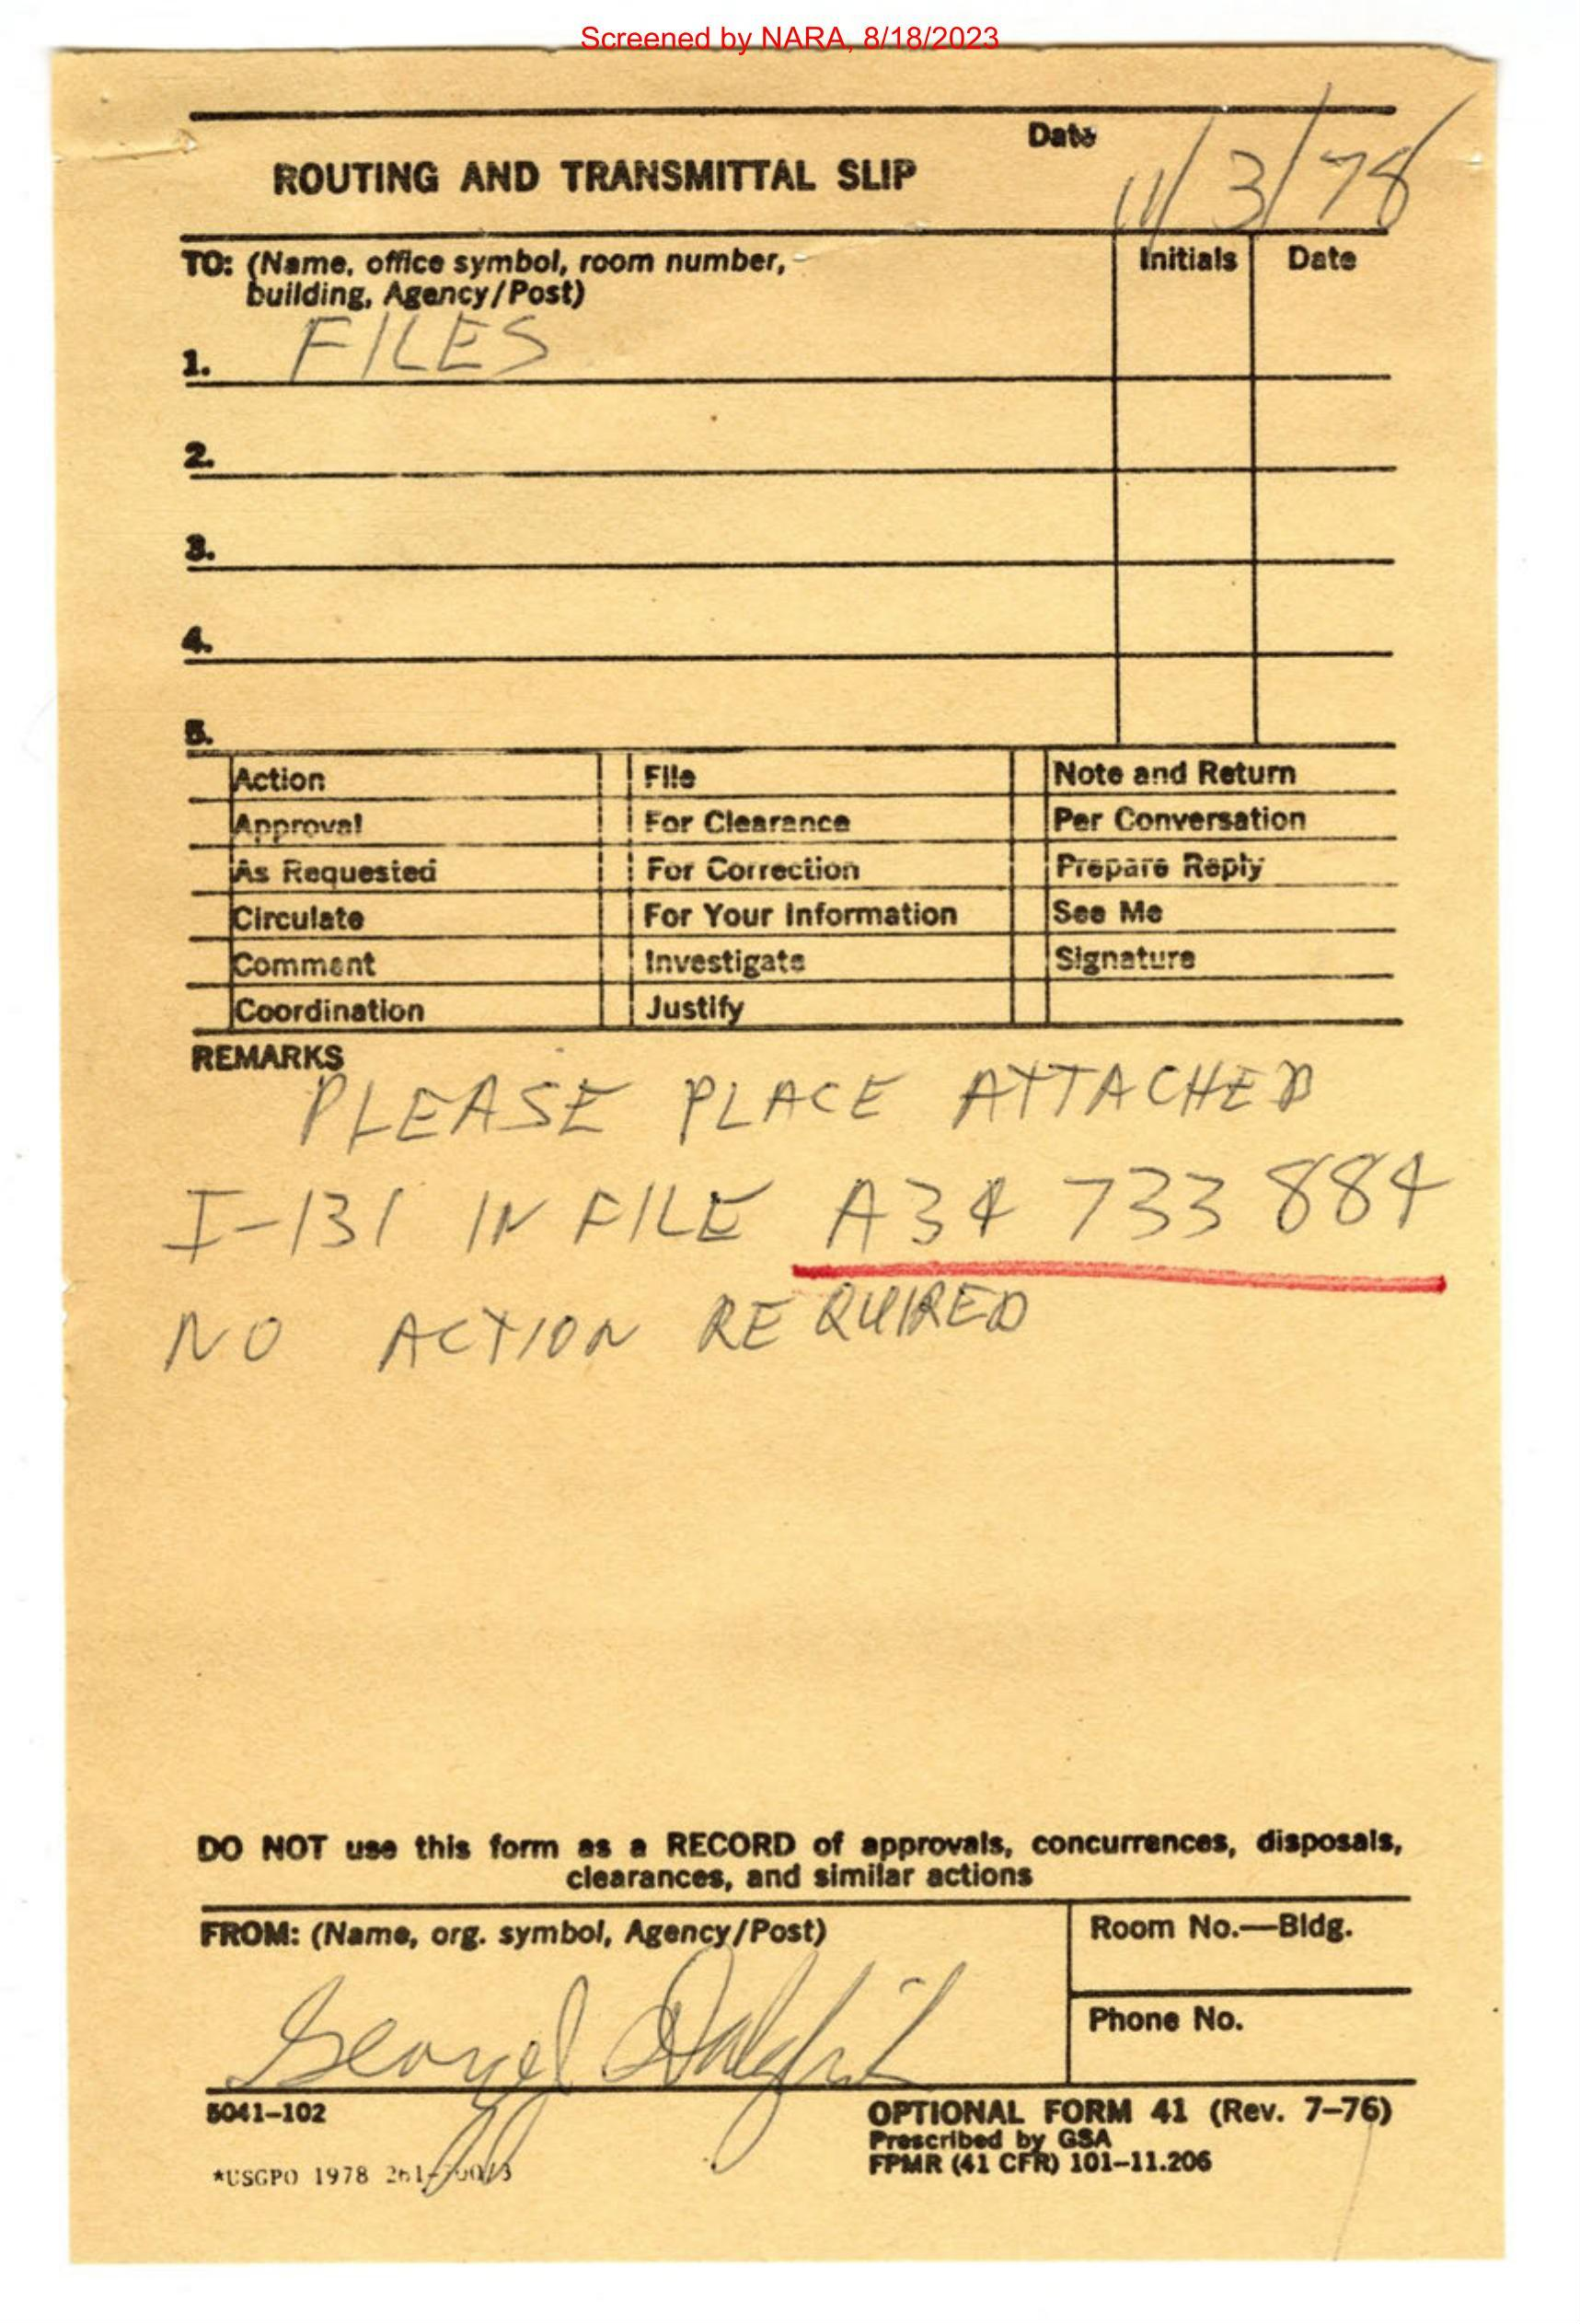 Screened by NARA, 8/18/2023
ROUTING AND TRANSMITTAL SLIP
Date
11/3/78
TO: (Name, office symbol, room number,
building, Agency/Post)
Initials
Date
1. FILES
2.
3.
4.
5.
Action File Note and Return
Approval For Clearance Per Conversation
As Requested For Correction Prepare Reply
Circulate For Your Information See Me
Comment Investigate Signature
Coordination Justify
REMARKS
PLEASE PLACE ATTACHED
I-131 IN FILE A34 733 884
NO ACTION REQUIRED
DO NOT use this form as a RECORD of approvals, concurrences, disposals,
clearances, and similar actions
FROM: (Name, org. symbol, Agency/Post)
Room No.—Bldg.
Phone No.
5041-102
OPTIONAL FORM 41 (Rev. 7-76)
Prescribed by GSA
FPMR (41 CFR) 101-11.206
*USGPO 1978